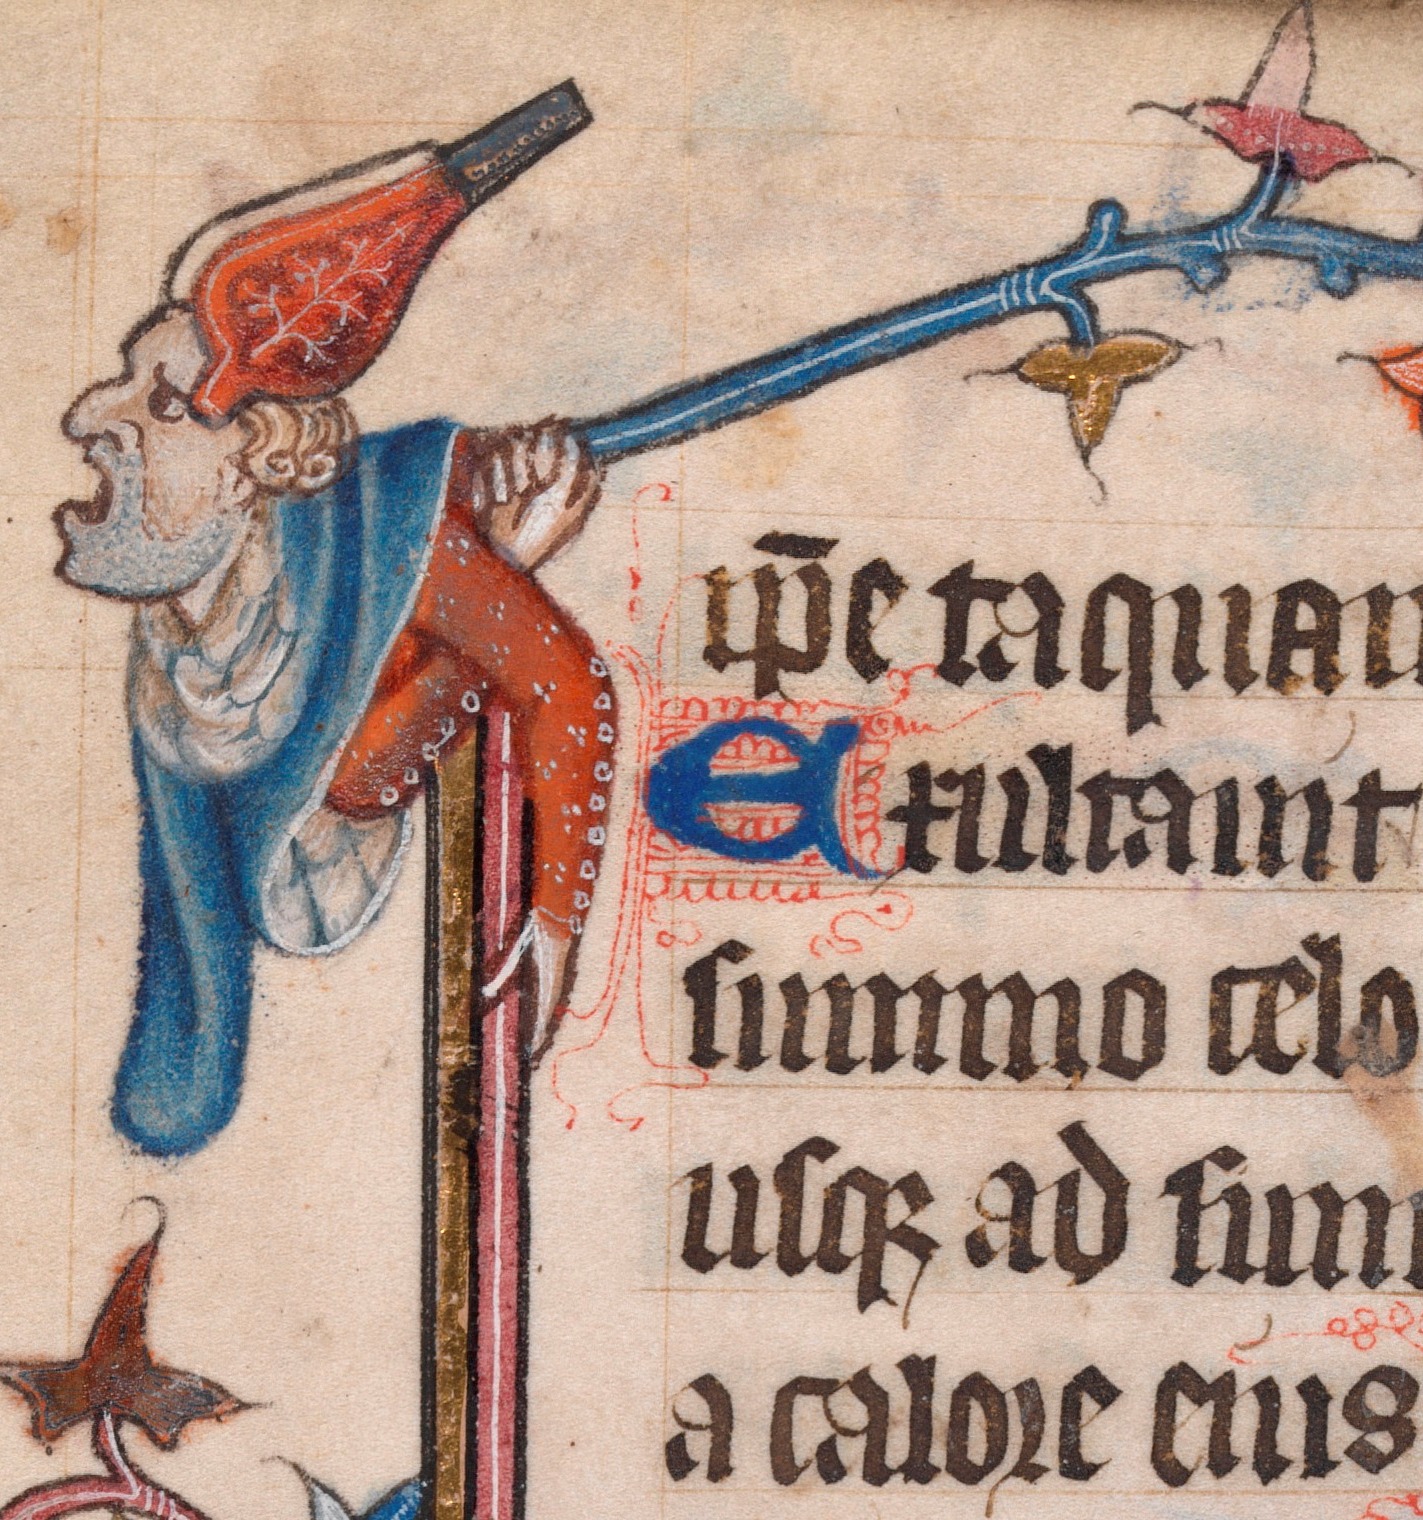 ip̄e taquam
Exultauit
summo celo
usqꝫ ad sum
a calore eius